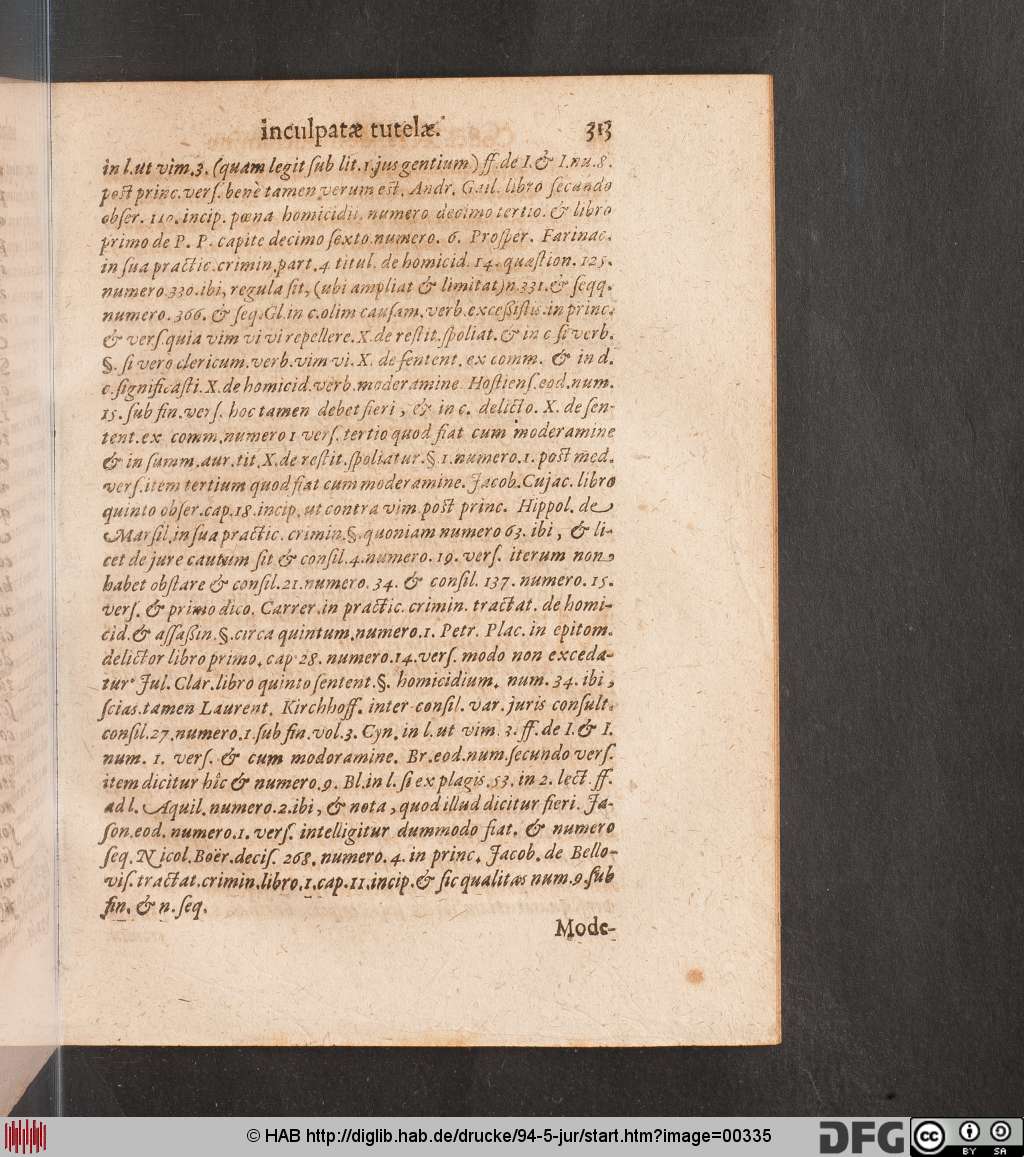 inculpatæ tutelæ. 313
in l. ut vim. 3. (quam legit ſub lit. 1. jus gentium) ff. de I. & I. nu. 8.
poſt princ. verſ. benè tamen verum est. Andr. Gail. libro ſecundo
obſer. 110. incip. pœna homicidii. numero decimo tertio. & libro
primo de P. P. capite decimo ſexto. numero. 6. Proſper. Farinac.
in ſua practic. crimin. part. 4. titul. de homicid. 14. quæſtion. 125.
numero 330. ibi, regula ſit, (ubi ampliat & limitat) n. 331. & ſeqq.
numero. 366. & ſeq. Gl. in c. olim cauſam. verb. exceſſiſtis. in princ.
& verſ. quia vim vi vi repellere. X. de reſtit. ſpoliat. & in c ſi verb.
§. ſi vero clericum. verb. vim vi. X. de ſentent. ex comm. & in d.
c. ſignificaſti. X. de homicid. verb. moderamine Hoſtienſ. eod. num.
15. ſub fin. verſ. hoc tamen debet fieri, & in c. delicto. X. de ſen-
tent. ex comm. numero 1 verſ. tertio quod fiat cum moderamine
& in ſumm. aur. tit. X. de reſtit. ſpoliatur. §. 1. numero. 1. poſt med.
verſ. item tertium quod fiat cum moderamine. Jacob. Cujac. libro
quinto obſer. cap. 18. incip. ut contra vim poſt princ. Hippol. de
Marſil. in ſua practic. crimin. §. quoniam numero 63. ibi, & li-
cet de jure cautum ſit & conſil. 4. numero. 19. verſ. iterum non
habet obſtare & conſil. 21. numero. 34. & conſil. 137. numero. 15.
verſ. & primo dico. Carrer. in practic. crimin. tractat. de homi-
cid. & aſſaßin. §. circa quintum. numero. 1. Petr. Plac. in epitom.
delictor libro primo. cap 28. numero. 14. verſ. modo non exceda-
tur. Jul. Clar. libro quinto ſentent. §. homicidium. num. 34. ibi,
ſcias tamen Laurent. Kirchhoff. inter conſil. var. juris conſult.
conſil. 27. numero. 1. ſub fin. vol. 3. Cyn. in l. ut vim. 3. ff. de I. & I.
num. 1. verſ. & cum modoramine. Br. eod. num. ſecundo verſ.
item dicitur hîc & numero. 9. Bl. in l. ſi ex plagis. 53. in 2. lect. ff.
ad l. Aquil. numero. 2. ibi, & nota, quod illud dicitur fieri. Ja-
ſon. eod. numero. 1. verſ. intelligitur dummodo fiat. & numero
ſeq. Nicol. Boër. deciſ. 268. numero. 4. in princ. Jacob. de Bello-
viſ. tractat. crimin. libro. 1. cap. 11. incip. & ſic qualitas num. 9. ſub
fin. & n. ſeq.
Mode-
© HAB http://diglib.hab.de/drucke/94-5-jur/start.htm?image=00335
DFG
cc BY SA